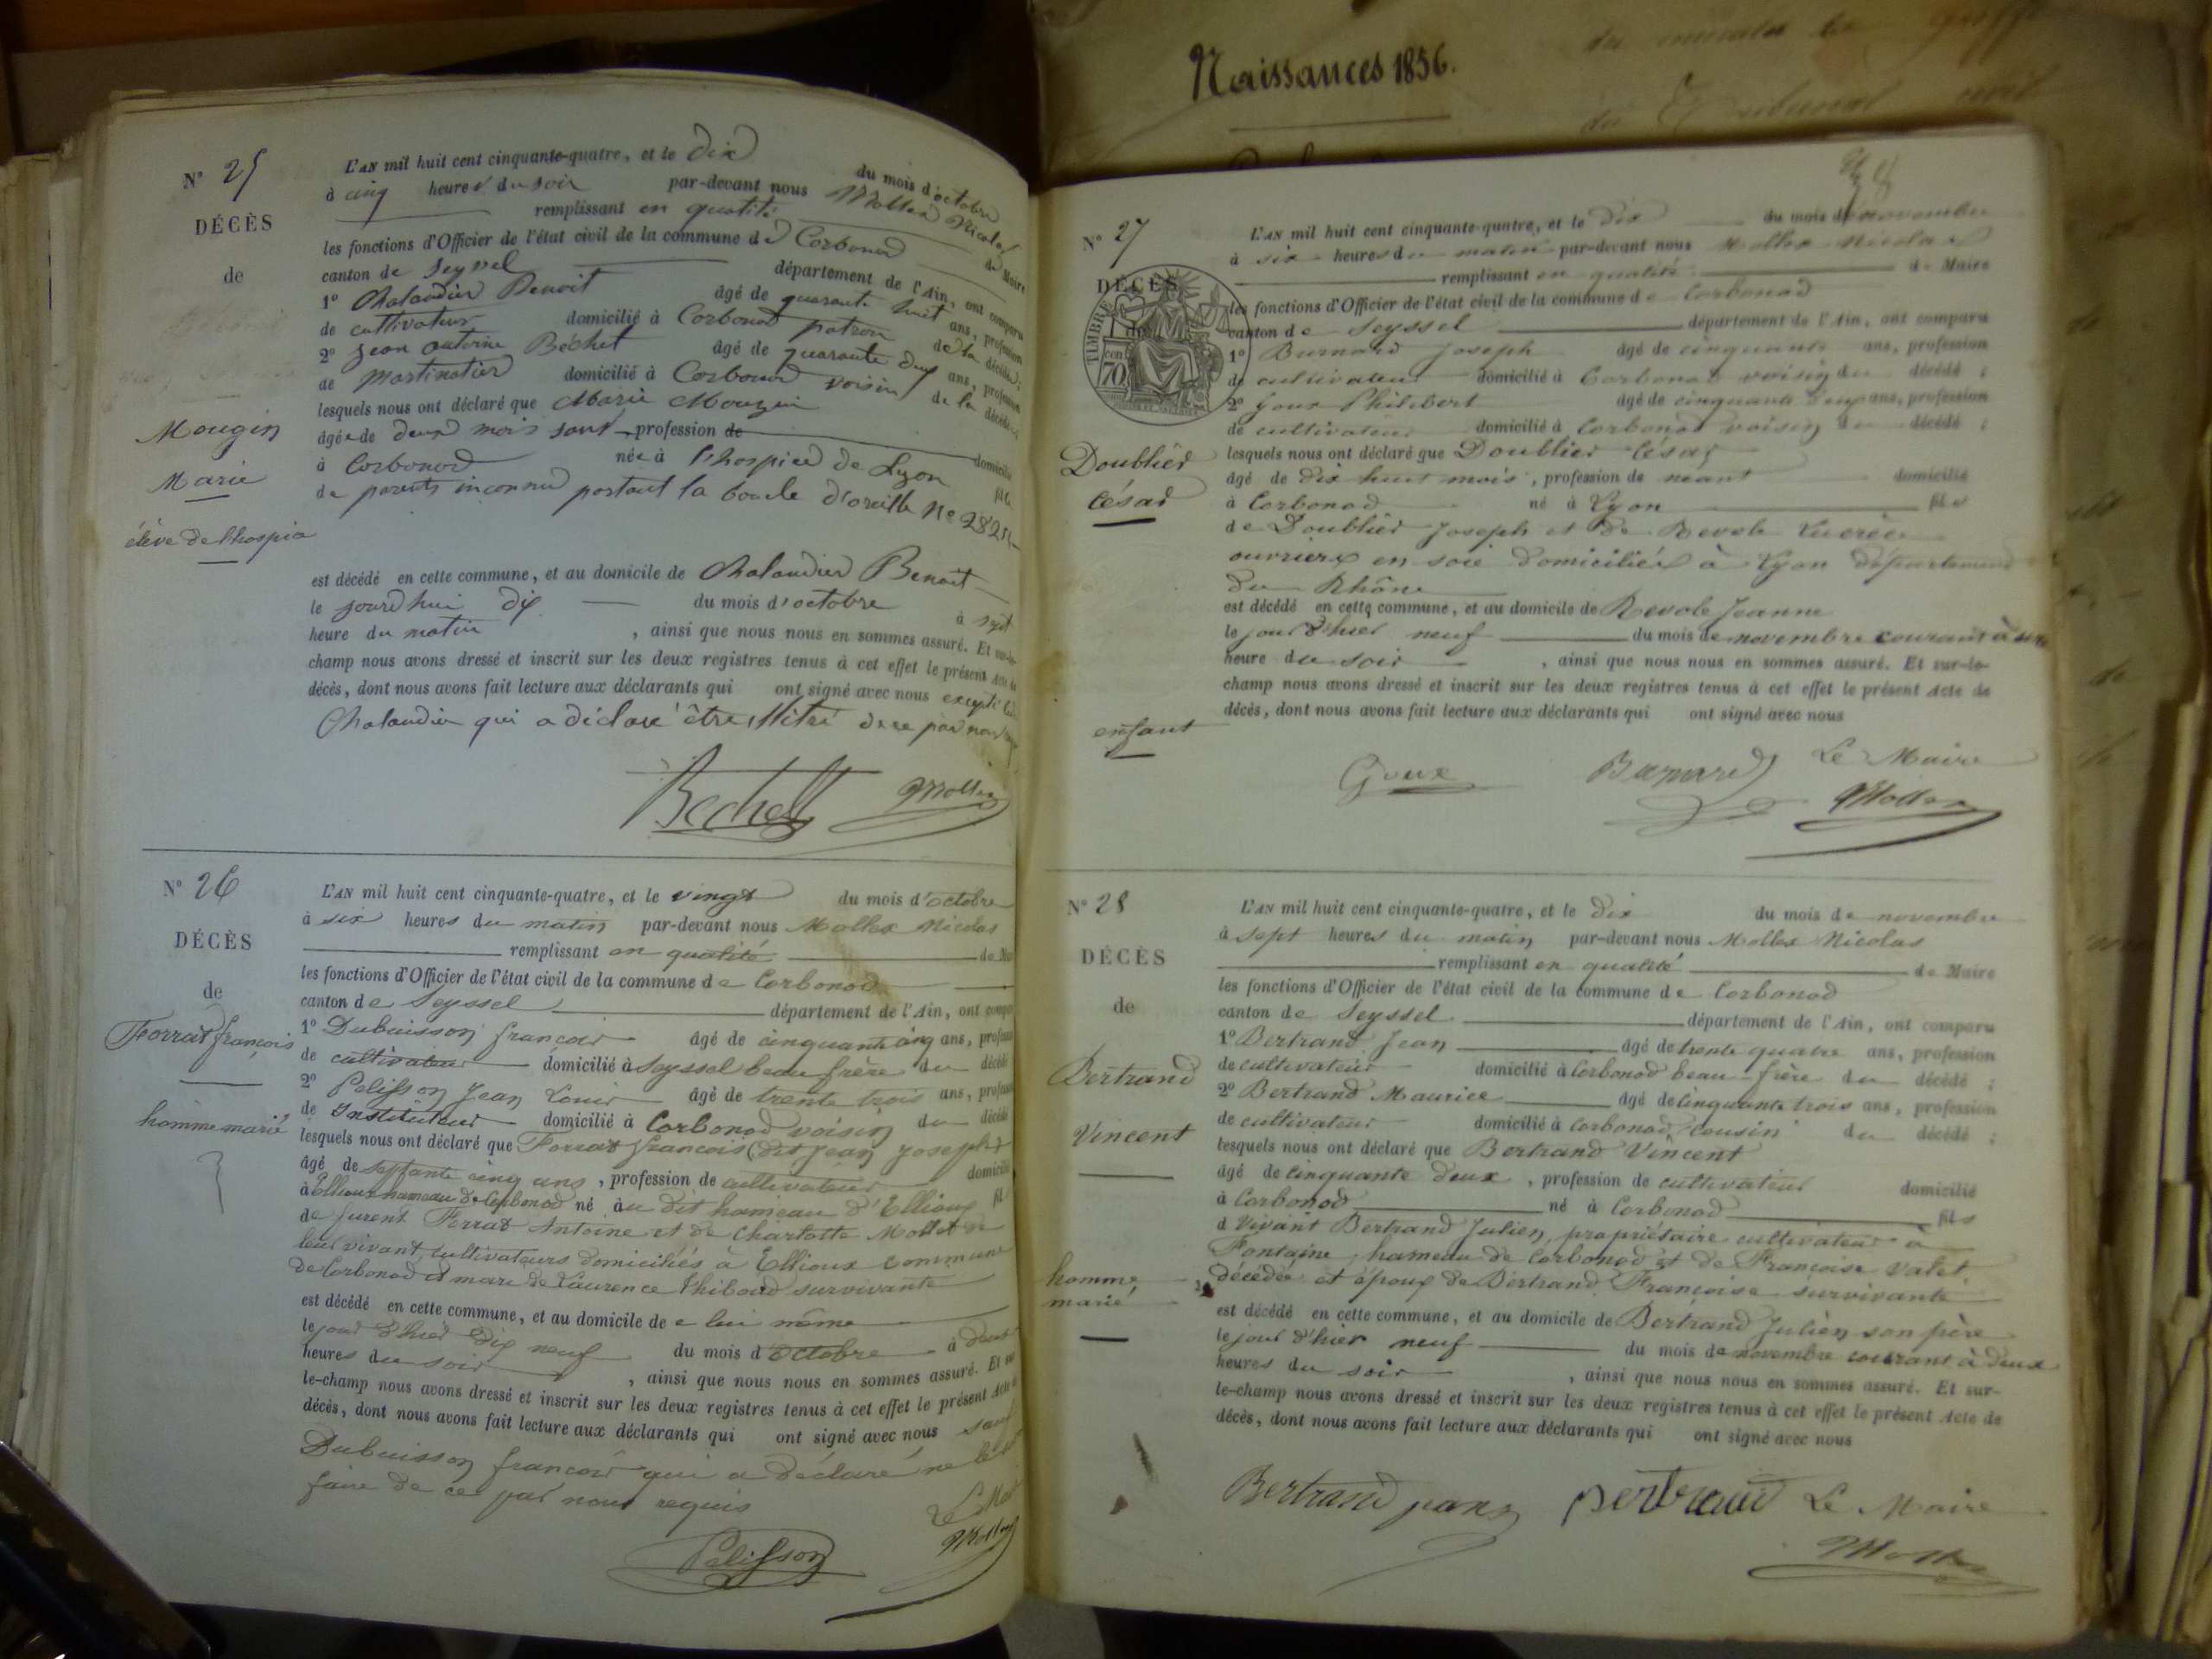 Naissances 1856.
N° 25
DÉCÈS
de
Mougin
Marie
élève de l'hospice
L'AN mil huit cent cinquante-quatre, et le dix du mois d'octobre
à cinq heures du soir par-devant nous Mollex Nicolas
remplissant en qualité de Maire
les fonctions d'Officier de l'état civil de la commune de Corbonod
canton de Seyssel département de l'Ain, ont comparu
1° Chalandier Benoit âgé de quarante huit ans, profession
de cultivateur domicilié à Corbonod patron de la décédé;
2° Jean Antoine Bechet âgé de quarante deux ans, profession
de Martinatier domicilié à Corbonod voisin de la décédé;
lesquels nous ont déclaré que Marie Mougin
âgée de deux mois sans profession de domicilié
à Corbonod née à l'hospice de Lyon fille
de parents inconnus portant la boucle d'oreille N°
est décédé en cette commune, et au domicile de Chalandier Benoit
le jourd'hui dix du mois d'octobre à sept
heure du matin, ainsi que nous nous en sommes assuré. Et sur-le-
champ nous avons dressé et inscrit sur les deux registres tenus à cet effet le présent Acte de
décès, dont nous avons fait lecture aux déclarants qui ont signé avec nous excepté
Chalandier qui a déclaré être illitré de ce par nous
Bechet Mollex
N° 26
DÉCÈS
de
Forrat françois
homme marié
L'AN mil huit cent cinquante-quatre, et le vingt du mois d'octobre
à six heures du matin par-devant nous Mollex Nicolas
remplissant en qualité de Ma
les fonctions d'Officier de l'état civil de la commune de Corbonod
canton de Seyssel département de l'Ain, ont compa
1° Dubuisson françois âgé de cinquante cinq ans, profess
de cultivateur domicilié à Seyssel beau frère du décédé
2° Pelisson Jean Louis âgé de trente trois ans, profess
de Instituteur domicilié à Corbonod voisin du décédé
lesquels nous ont déclaré que Forrat françois (dit Jean Joseph)
âgé de septante cinq ans, profession de cultivateur domicilié
à Ellioux hameau de Corbonod né au dit hameau d'Ellioux fil
de furent Forrat Antoine et de Charlotte Mollet de
leur vivant, cultivateurs domiciliés à Ellioux commune
de Corbonod et mari de Laurence Thiboud survivante
est décédé en cette commune, et au domicile de e lui même
le jour d'hier dix neuf du mois d'octobre à deux
heures du soir, ainsi que nous nous en sommes assuré. Et sur
le-champ nous avons dressé et inscrit sur les deux registres tenus à cet effet le présent Acte de
décès, dont nous avons fait lecture aux déclarants qui ont signé avec nous sauf
Dubuisson françois qui a déclaré ne le
faire de ce par nous requis
Le Mai
Pelisson Mollex
N° 27
DÉCÈS
de
TIMBRE
70 cen
Doublier
César
enfant
L'AN mil huit cent cinquante-quatre, et le dix du mois de novembre
à six heures du matin par-devant nous Mollex Nicolas
remplissant en qualité de Maire
les fonctions d'Officier de l'état civil de la commune de Corbonod
canton de Seyssel département de l'Ain, ont comparu
1° Burnard Joseph âgé de cinquante ans, profession
de cultivateur domicilié à Corbonod voisin du décédé;
2° Goux Philibert âgé de cinquante deux ans, profession
de cultivateur domicilié à Corbonod voisin du décédé;
lesquels nous ont déclaré que Doublier César
âgé de dix huit mois, profession de néant domicilié
à Corbonod né à Lyon fils
de Doublier Joseph et de Lucrèce
ouvriers en soie domiciliés à Lyon département
du Rhône
est décédé en cette commune, et au domicile de Jeanne
le jour d'hier neuf du mois de novembre courant à
heure du soir, ainsi que nous nous en sommes assuré. Et sur-le-
champ nous avons dressé et inscrit sur les deux registres tenus à cet effet le présent Acte de
décès, dont nous avons fait lecture aux déclarants qui ont signé avec nous
Goux Le Maire
Mollex
N° 28
DÉCÈS
de
Bertrand
Vincent
homme
marié
L'AN mil huit cent cinquante-quatre, et le dix du mois de novembre
à sept heures du matin par-devant nous Mollex Nicolas
remplissant en qualité de Maire
les fonctions d'Officier de l'état civil de la commune de Corbonod
canton de Seyssel département de l'Ain, ont comparu
1° Bertrand Jean âgé de trente quatre ans, profession
de cultivateur domicilié à Corbonod beau-frère du décédé;
2° Bertrand Maurice âgé de cinquante trois ans, profession
de cultivateur domicilié à Corbonod cousin du décédé;
lesquels nous ont déclaré que Bertrand Vincent
âgé de cinquante deux, profession de cultivateur domicilié
à Corbonod né à Corbonod fils
à vivant Bertrand Julien, propriétaire cultivateur à
Fontaine, hameau de Corbonod et de Françoise Valet
décédée et époux de Bertrand Françoise survivante
est décédé en cette commune, et au domicile de Bertrand Julien son père
le jour d'hier neuf du mois de novembre courant à deux
heures du soir, ainsi que nous nous en sommes assuré. Et sur-
le-champ nous avons dressé et inscrit sur les deux registres tenus à cet effet le présent Acte de
décès, dont nous avons fait lecture aux déclarants qui ont signé avec nous
Bertrand jean Bertrand Le Maire
Mollex